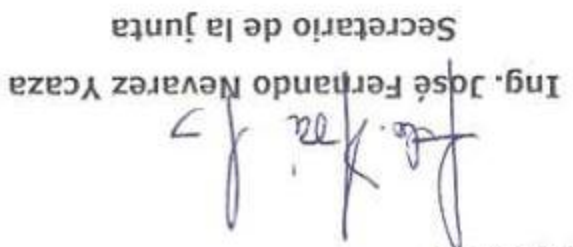 Ing. José Fernando Nevarez Ycaza
Secretario de la junta